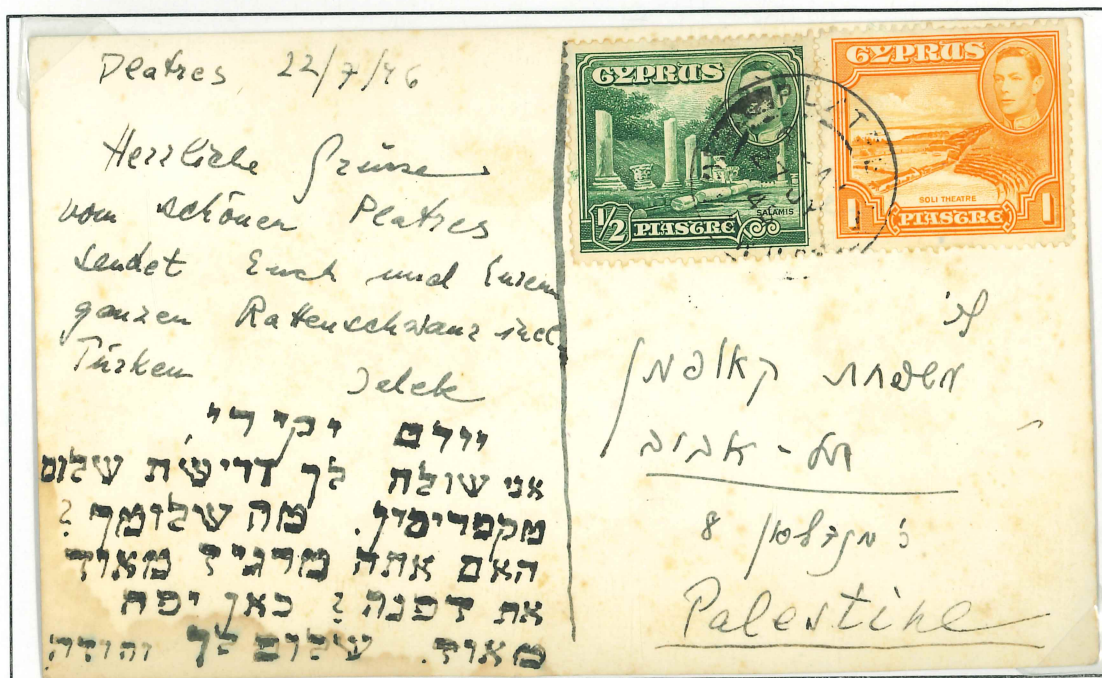 Platres 22/7/46
Herrliche Grüsse
vom schönen Platres
sendet Euch und Eurem
ganzen Rattenschwanz incl.
Türken Jelek
יורם יקירי,
אני שולח לך דרישת שלום
מקפריסין. מה שלומך?
האם אתה מרגיז מאוד
את דפנה? כאן יפה
מאוד. שלום לך יהודה.
CYPRUS
SALAMIS
1/2 PIASTRE
CYPRUS
SOLI THEATRE
1 PIASTRE 1
לכ'
משפחת קאופמן
תל-אביב
8
Palestine